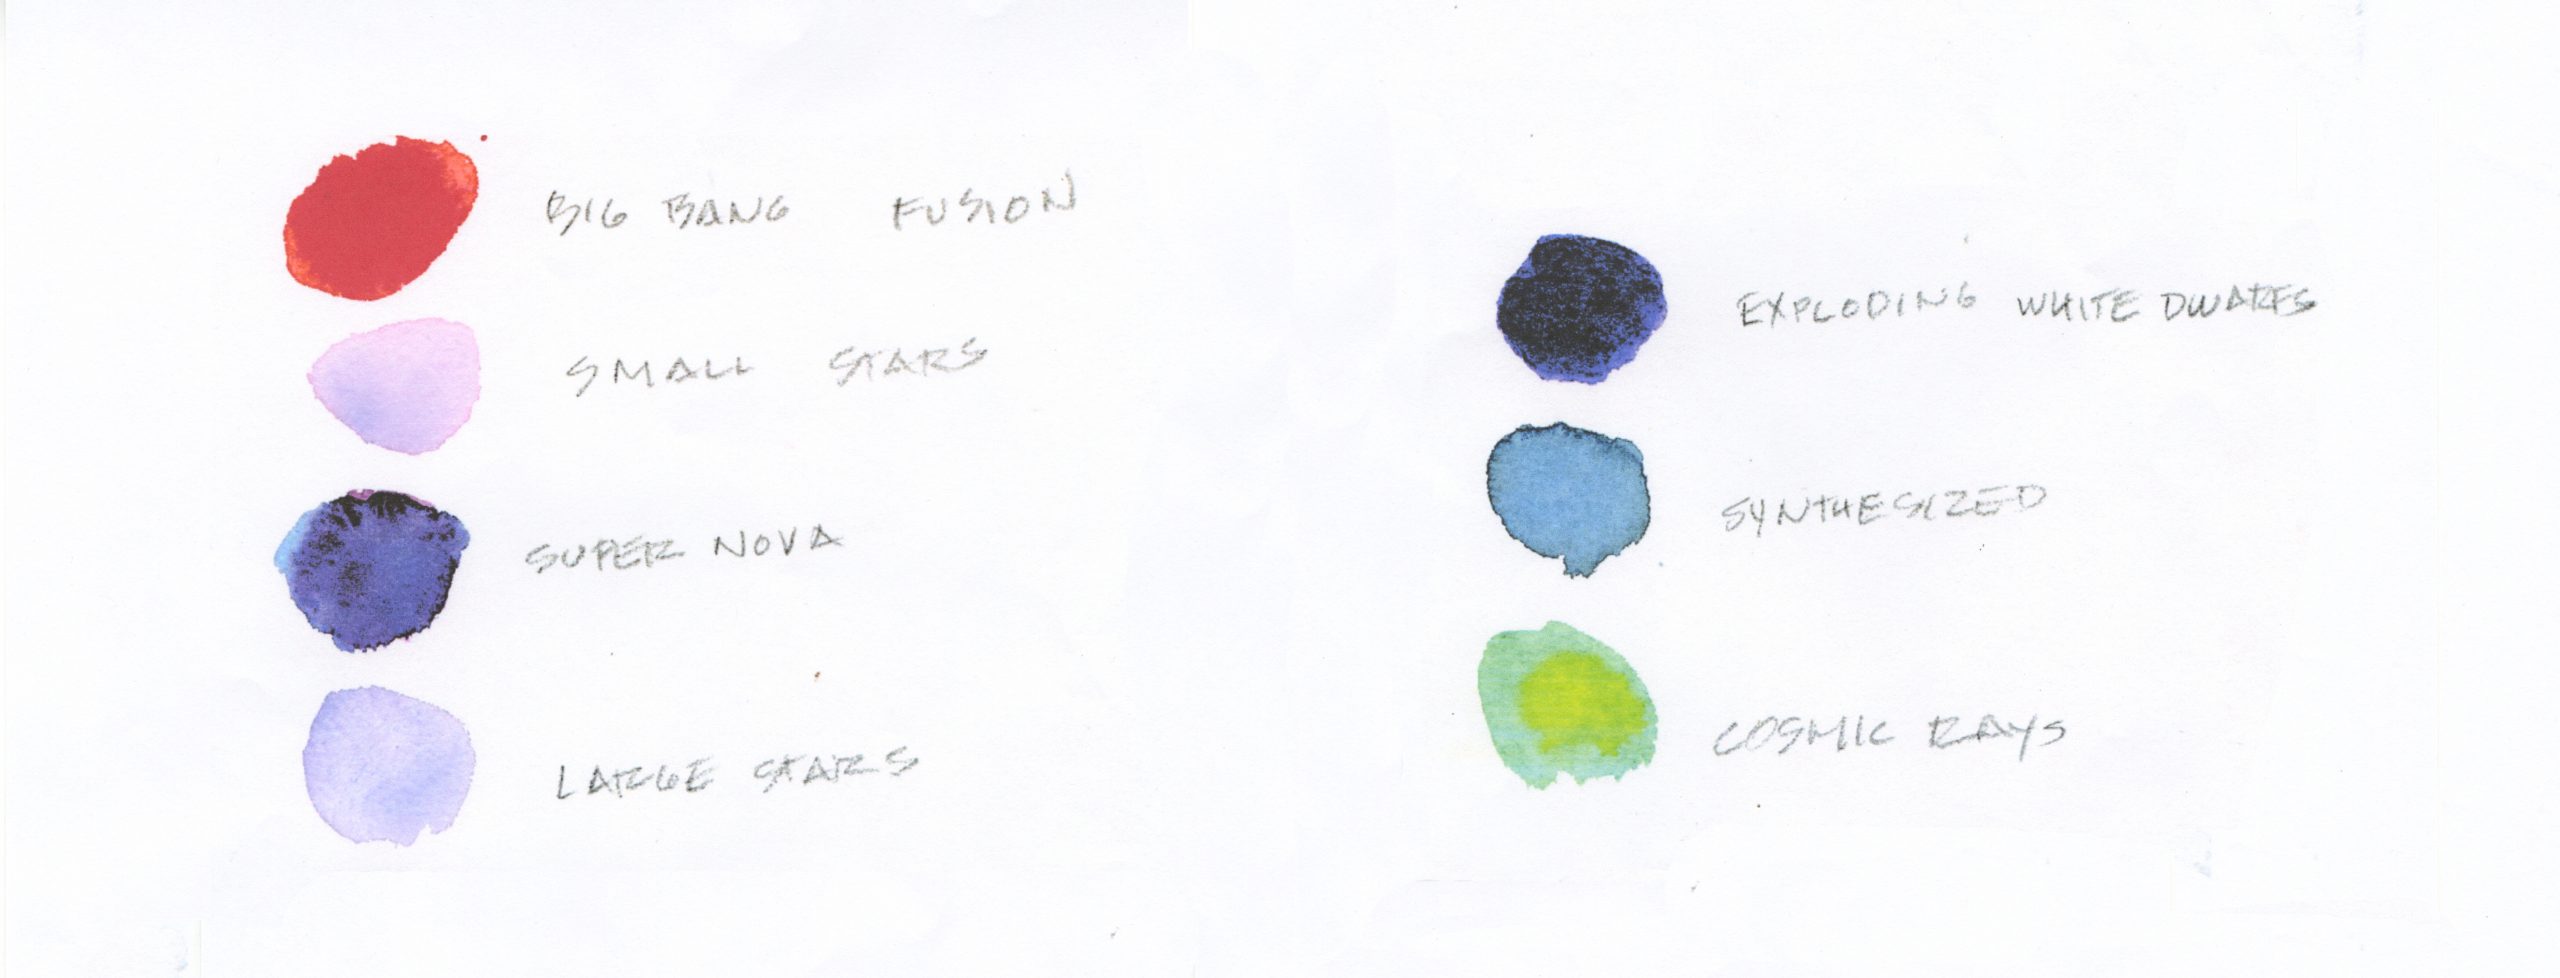 BIG BANG FUSION
SMALL STARS
SUPER NOVA
LARGE STARS
EXPLODING WHITE DWARFS
SYNTHESIZED
COSMIC RAYS